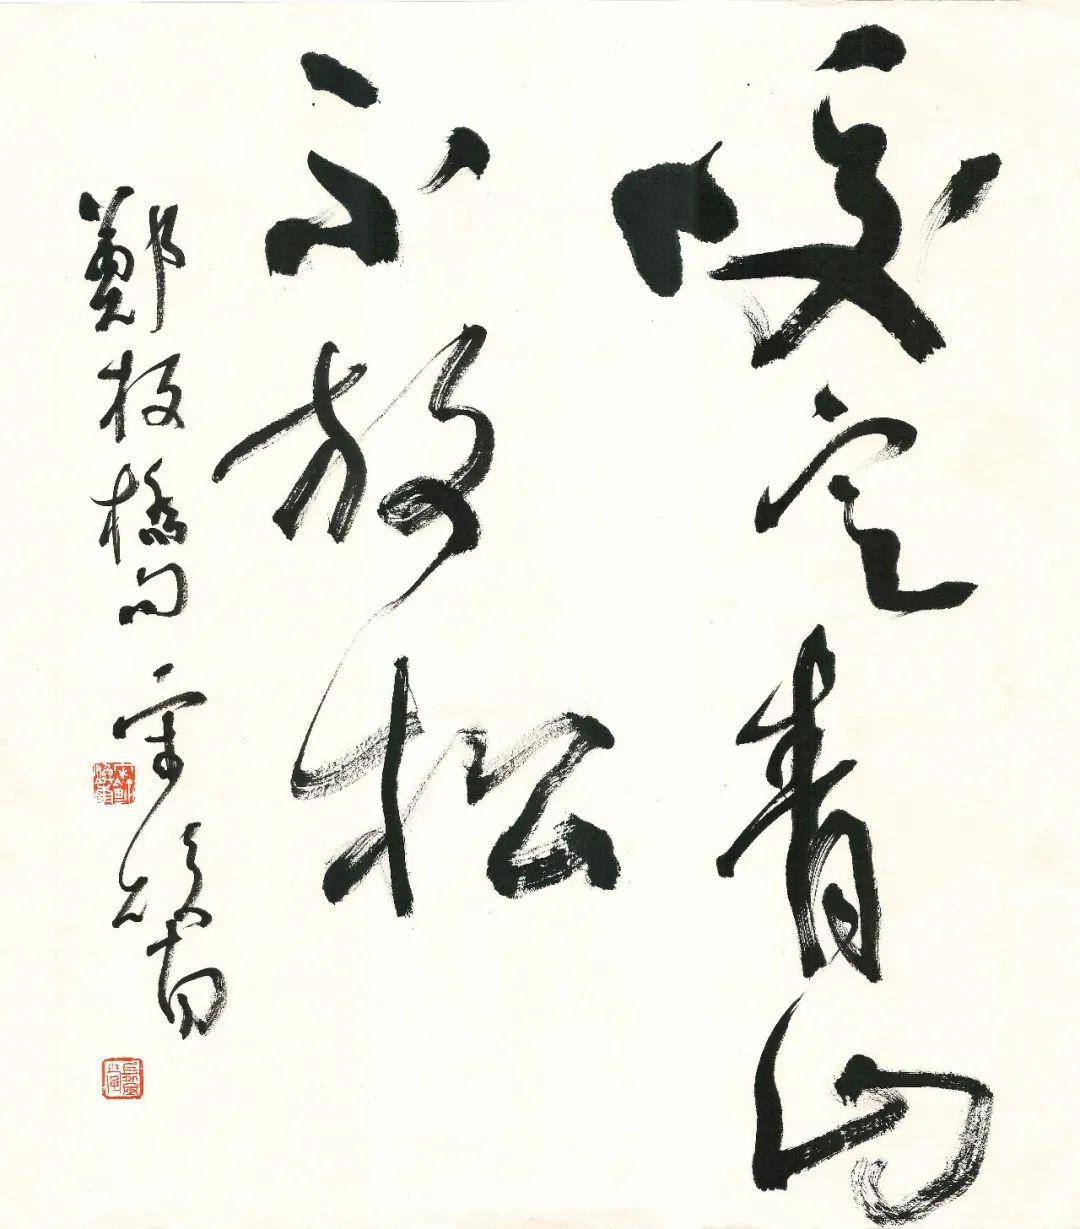 咬定青山
不放松
鄭板橋句